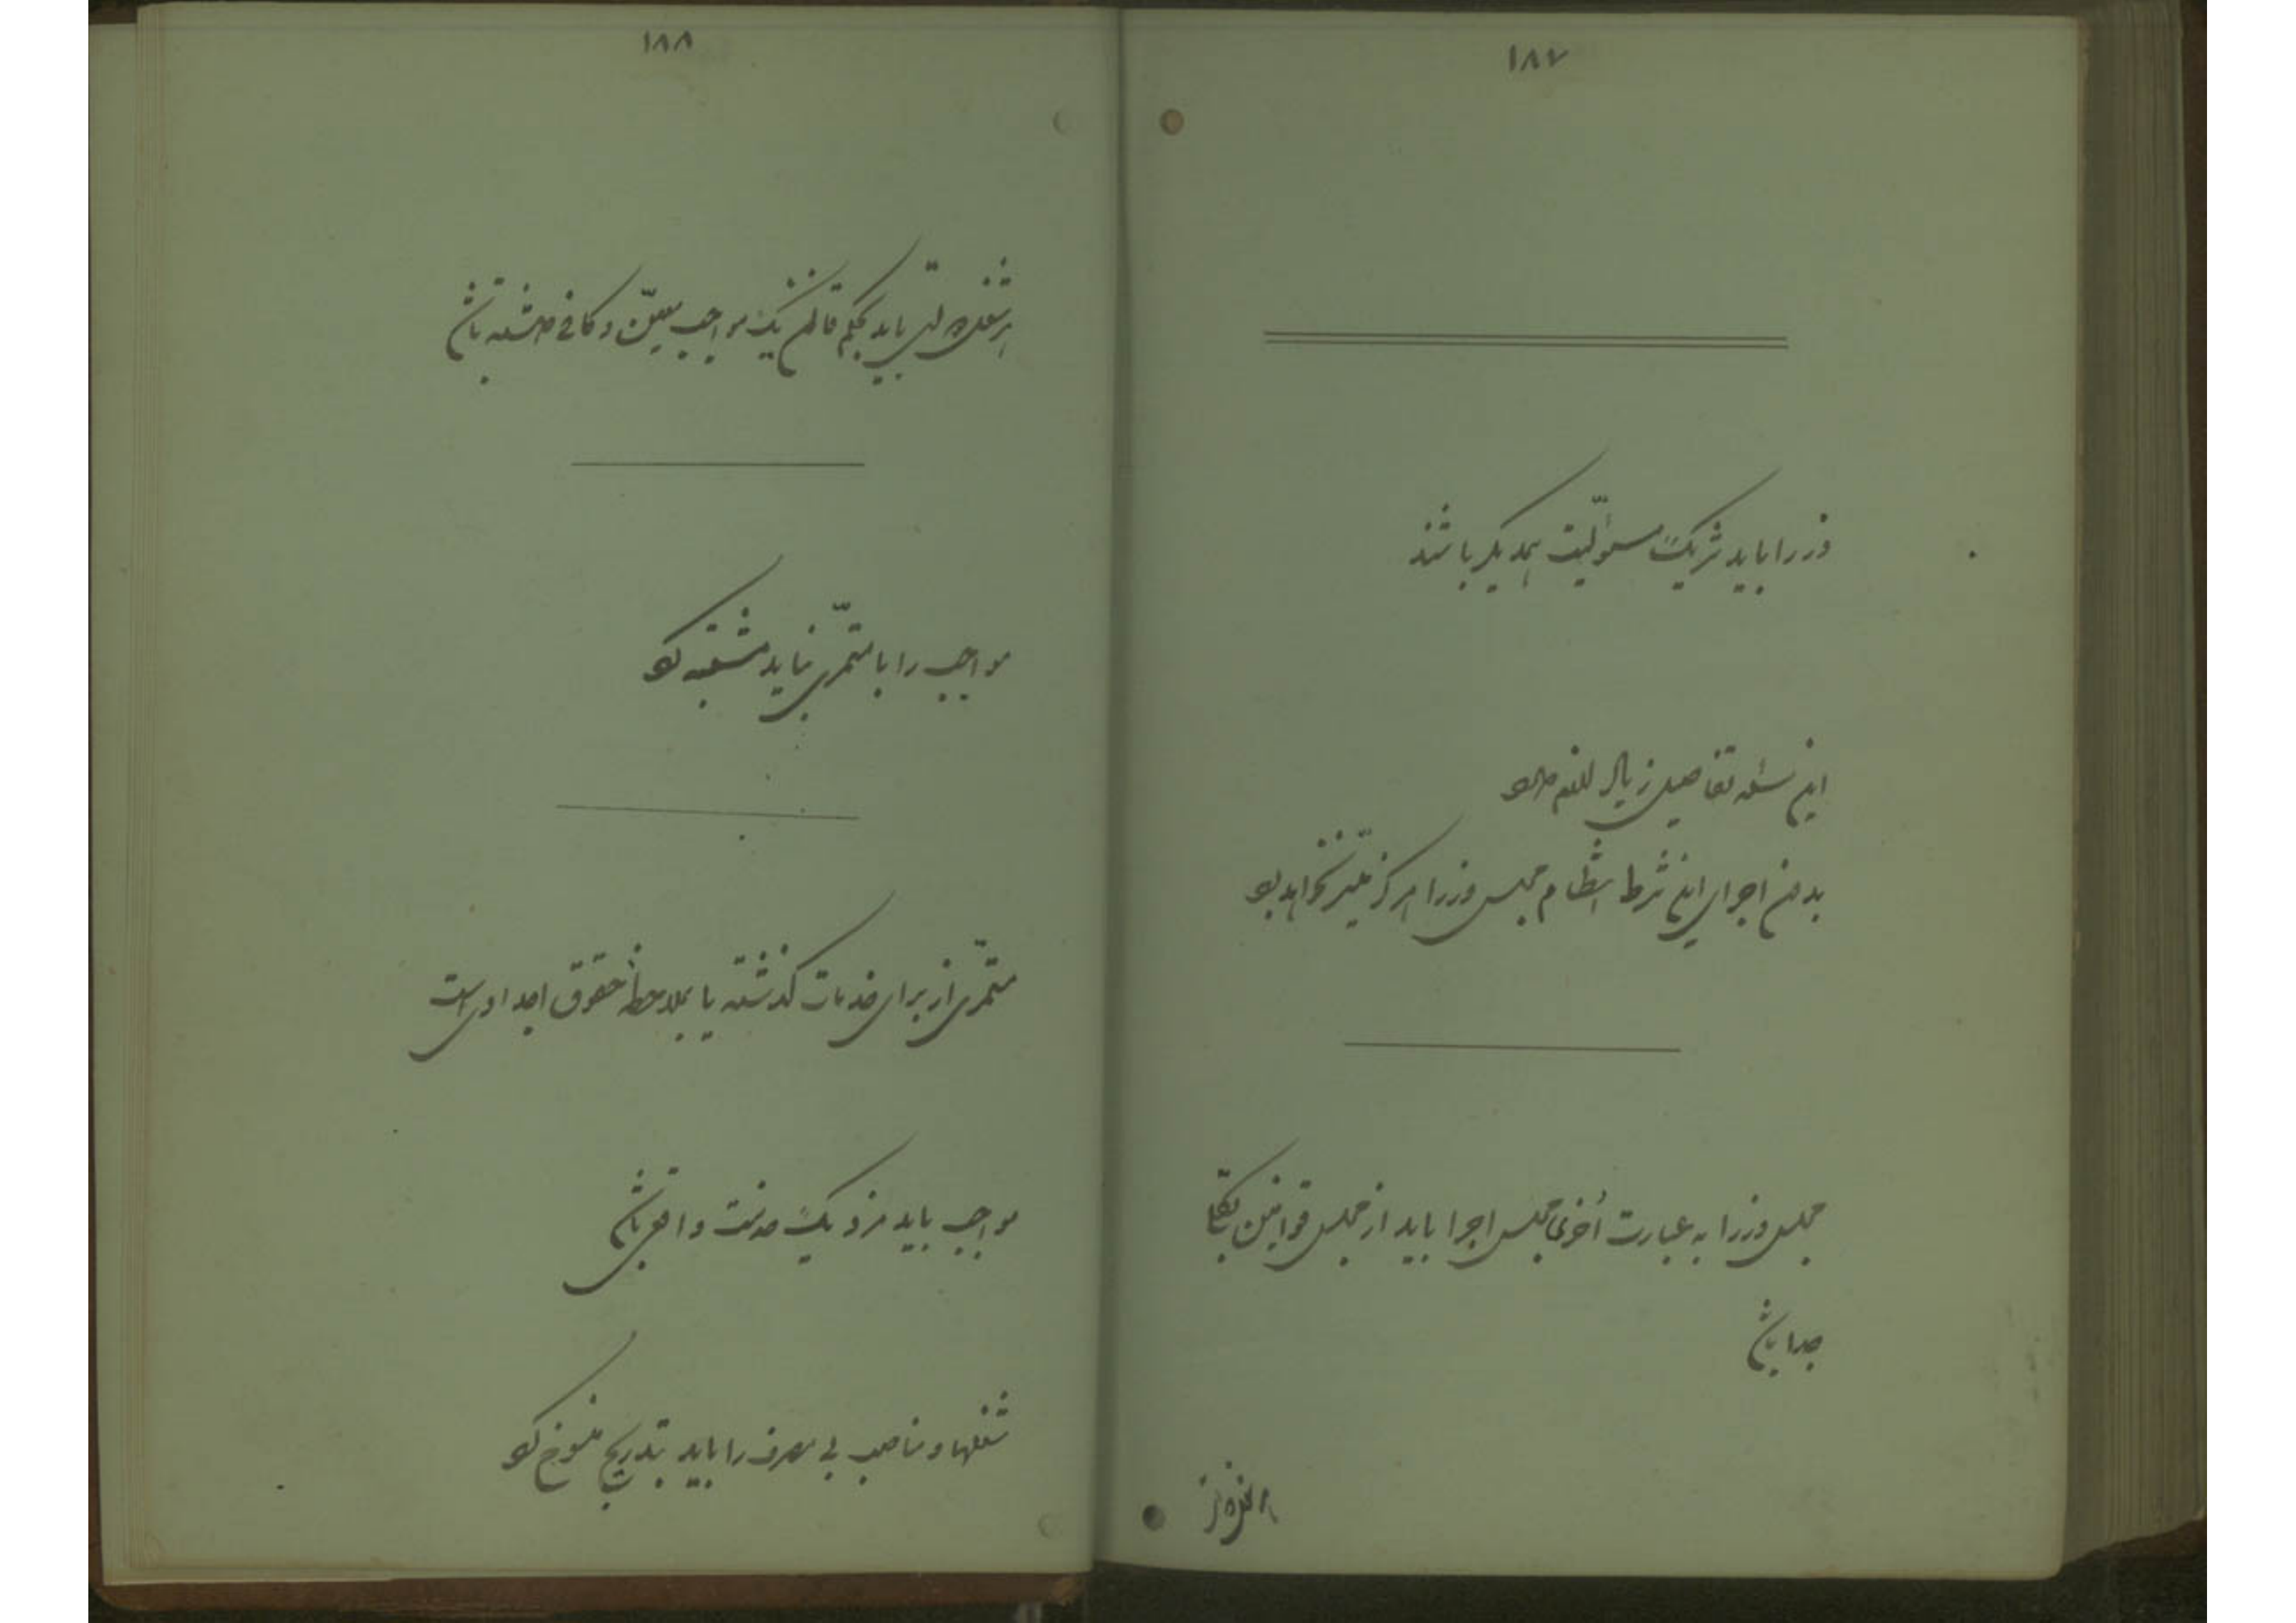 ۱۸۷
وزرا باید شریک مسئولیت همدیگر باشند
این مسئله تفاصیل زیاد لازم دارد
بدون اجرای این شرط انتظام مجلس وزرا هرگز میسر نخواهد بود
مجلس وزرا به عبارت اُخری مجلس اجرا باید از مجلس قوانین بکلی
جدا باشد
۱۸۸
هر شغل دولتی باید بحکم قانون یک مواجب معین و کافی داشته باشد
مواجب را با مستمری نباید مشتبه کرد
مستمری از برای خدمات گذشته یا بملاحظهٔ حقوق اجدادی است
مواجب باید مزد یک خدمت واقعی باشد
شغلها و مناصب بی مصرف را باید بتدریج منسوخ کرد